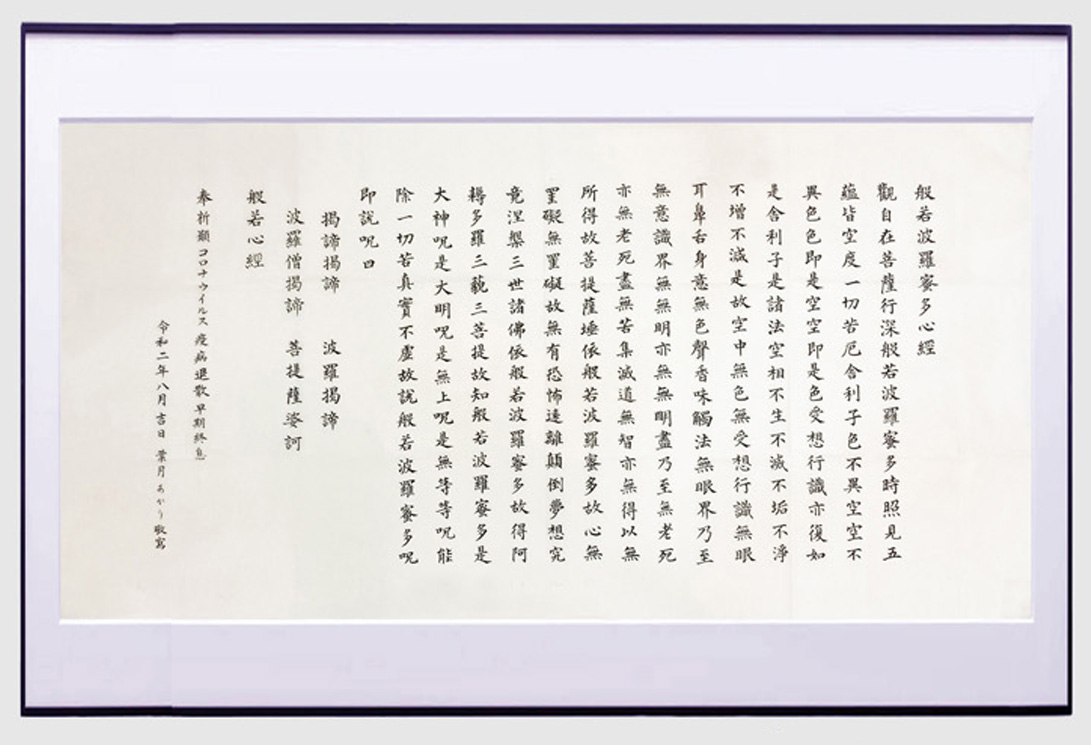 般若波羅蜜多心經
觀自在菩薩行深般若波羅蜜多時照見五
蘊皆空度一切苦厄舍利子色不異空空不
異色色即是空空即是色受想行識亦復如
是舍利子是諸法空相不生不滅不垢不淨
不增不減是故空中無色無受想行識無眼
耳鼻舌身意無色聲香味觸法無眼界乃至
無意識界無無明亦無無明盡乃至無老死
亦無老死盡無苦集滅道無智亦無得以無
所得故菩提薩埵依般若波羅蜜多故心無
罣礙無罣礙故無有恐怖遠離顛倒夢想究
竟涅槃三世諸佛依般若波羅蜜多故得阿
耨多羅三藐三菩提故知般若波羅蜜多是
大神呪是大明呪是無上呪是無等等呪能
除一切苦真實不虛故說般若波羅蜜多呪
即說呪曰
揭諦揭諦 波羅揭諦
波羅僧揭諦 菩提薩婆訶
般若心經
奉祈願コロナウイルス疫病退散早期終息
令和二年八月吉日 葉月あかり敬寫